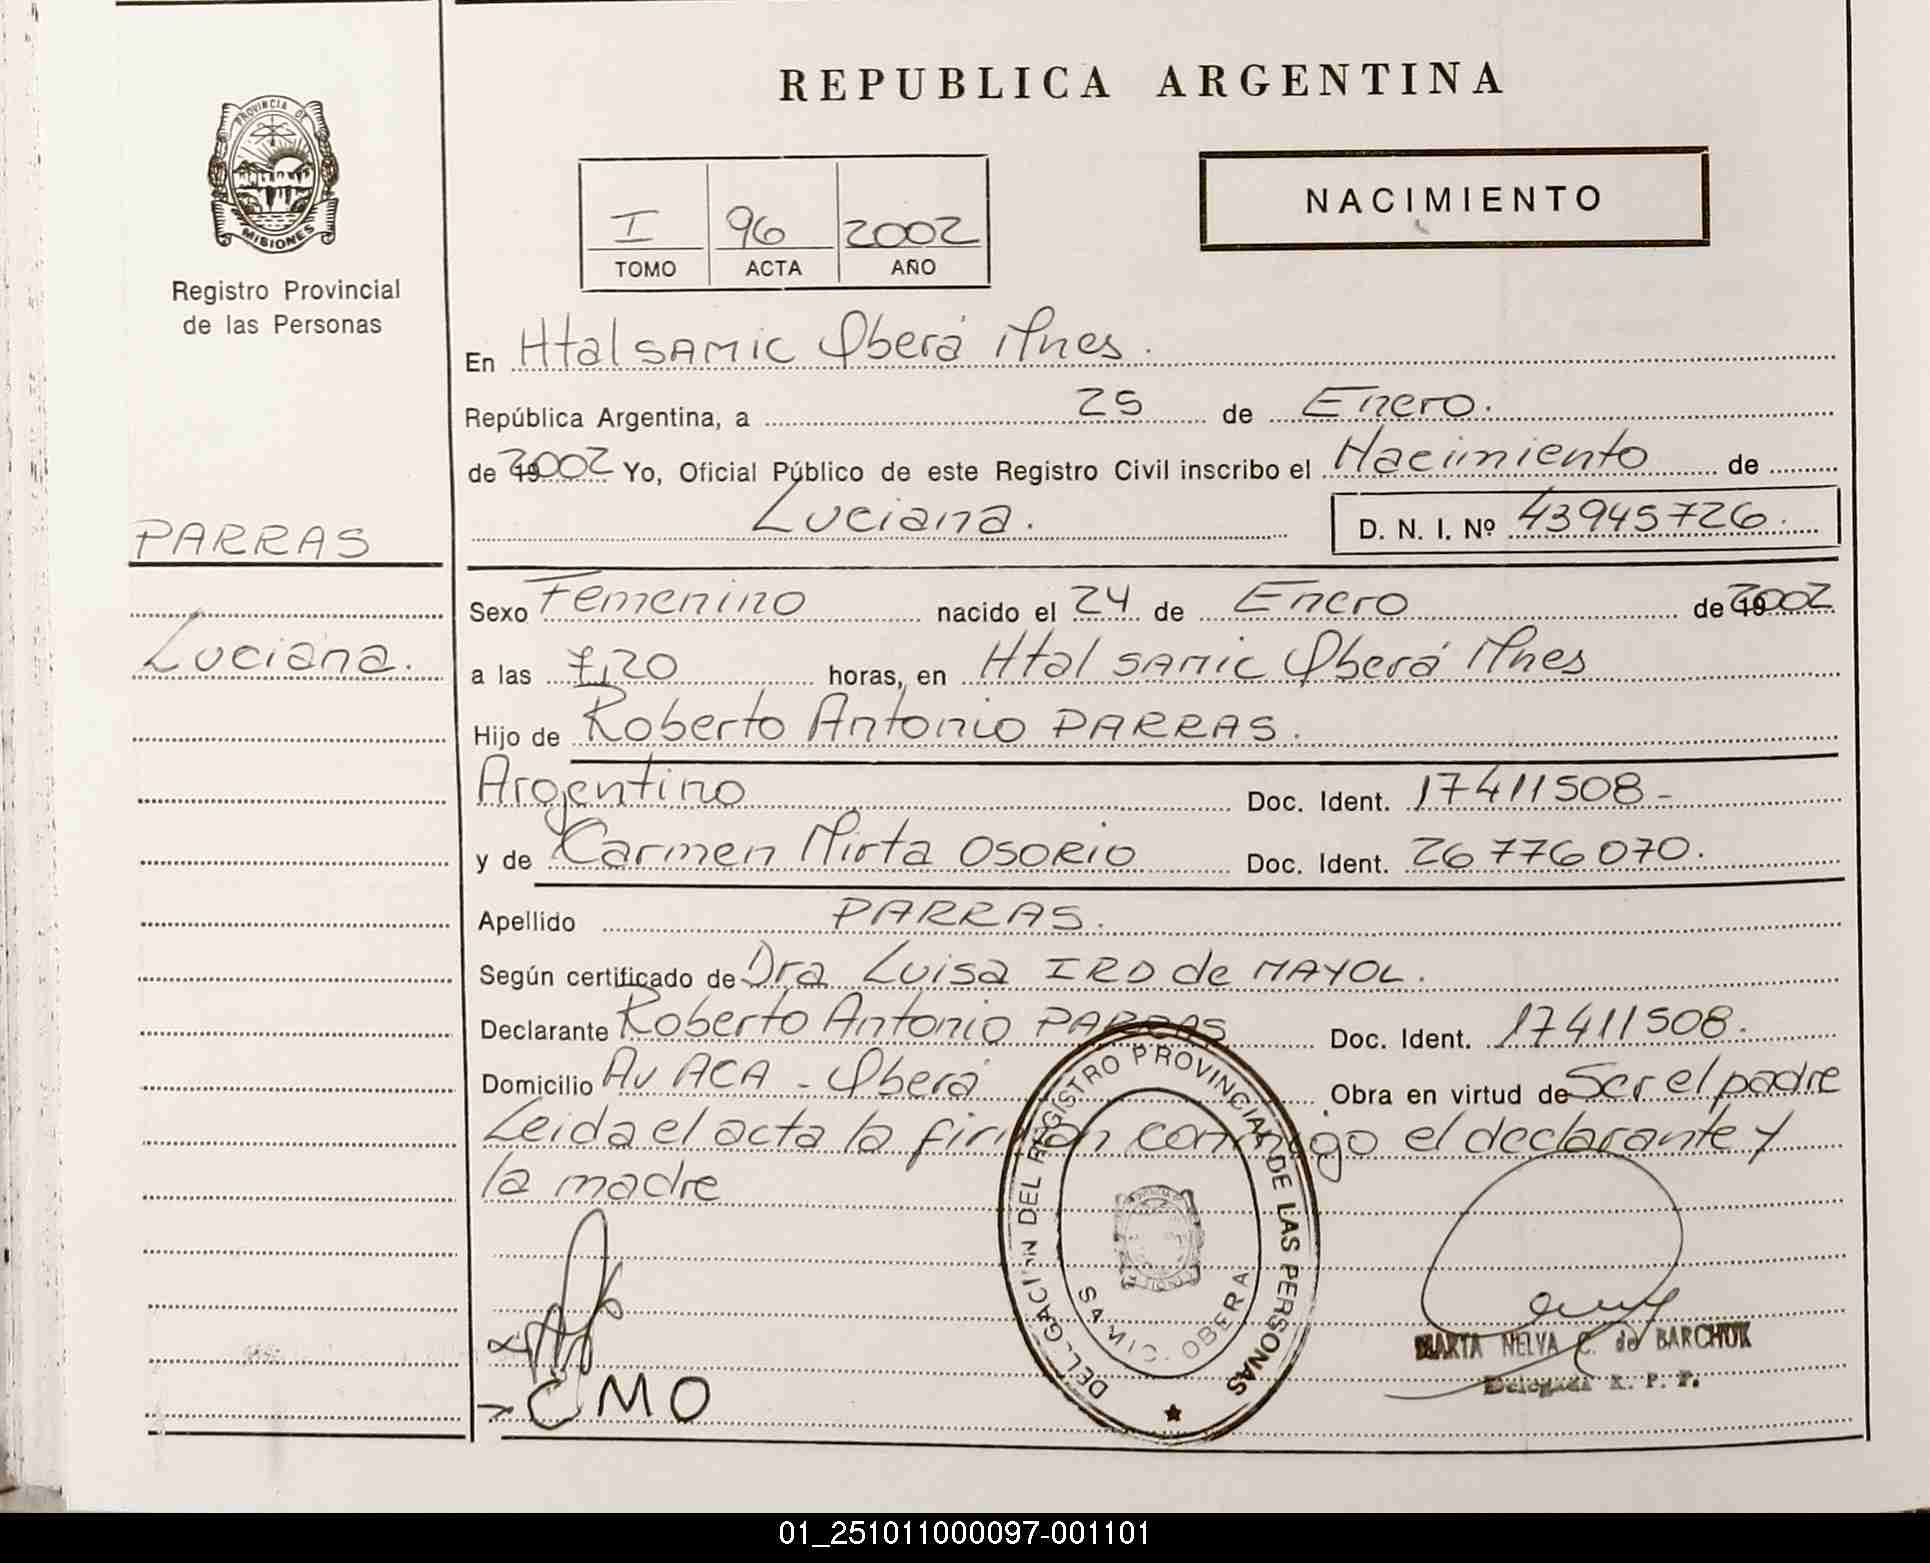 REPUBLICA ARGENTINA
PROVINCIA DE
MISIONES
Registro Provincial
de las Personas
I 96 2002
TOMO ACTA AÑO
NACIMIENTO
En Htal SAMIC Oberá Mnes.
República Argentina, a 25 de Enero.
de 2002 Yo, Oficial Público de este Registro Civil inscribo el Nacimiento de
Luciana. D. N. I. Nº 43945726.
PARRAS
Luciana.
Sexo Femenino nacido el 24 de Enero de 2002
a las 7,20 horas, en Htal SAMIC Oberá Mnes
Hijo de Roberto Antonio PARRAS.
Argentino Doc. Ident. 17411508-
y de Carmen Mirta OSORIO Doc. Ident. 26776070.
Apellido PARRAS.
Según certificado de Dra Luisa IRD de MAYOL.
Declarante Roberto Antonio PARRAS Doc. Ident. 17411508.
Domicilio Av ACA - Oberá Obra en virtud de Ser el padre
Leida el acta la firman conmigo el declarante y
la madre
DELEGACION DEL REGISTRO PROVINCIAL DE LAS PERSONAS
SAMIC - OBERA
CMO
MARTA NELVA C. de BARCHUK
Delegada R. P. P.
01_251011000097-001101